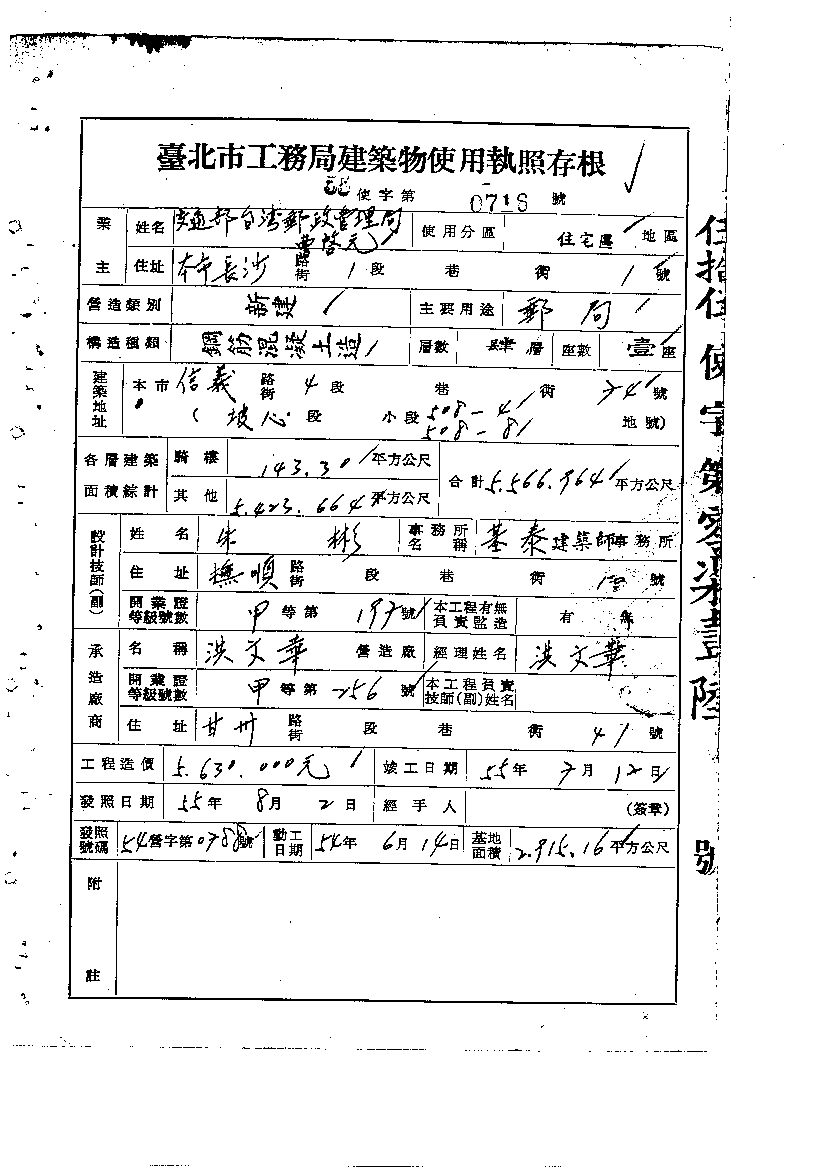 臺北市工務局建築物使用執照存根
使字第 0716 號
業主 姓名 交通部台灣郵政管理局 曹啓元 使用分區 住宅區 地區
住址 本市長沙 路街 1段 巷 衖 1號
營造類別 新建 主要用途 郵局
構造種類 鋼筋混凝土造 層數 肆層 座數 壹座
建築地址 本市信義 路街 4段 巷 衖 號
(坡心段 小段 508-4 508-8 地號)
各層建築面積綜計 騎樓 143.30 平方公尺 合計 5.566.964 平方公尺
其他 5.423.664 平方公尺
設計技師(副) 姓名 朱彬 事務所名稱 基泰建築師事務所
住址 撫順 路街 段 巷 衖 號
開業證等級號數 甲等第 197號 本工程有無負責監造 有 無
承造廠商 名稱 洪文華 營造廠 經理姓名 洪文華
開業證等級號數 甲等第 256號 本工程負責技師(副)姓名
住址 甘州 路街 段 巷 衖 41號
工程造價 5.630.000元 竣工日期 55年 7月 12日
發照日期 55年 8月 2日 經手人 (簽章)
發照號碼 54營字第0788號 動工日期 54年 6月 14日 基地面積 2.915.16平方公尺
附註
伍拾伍使字第零柒壹陸號